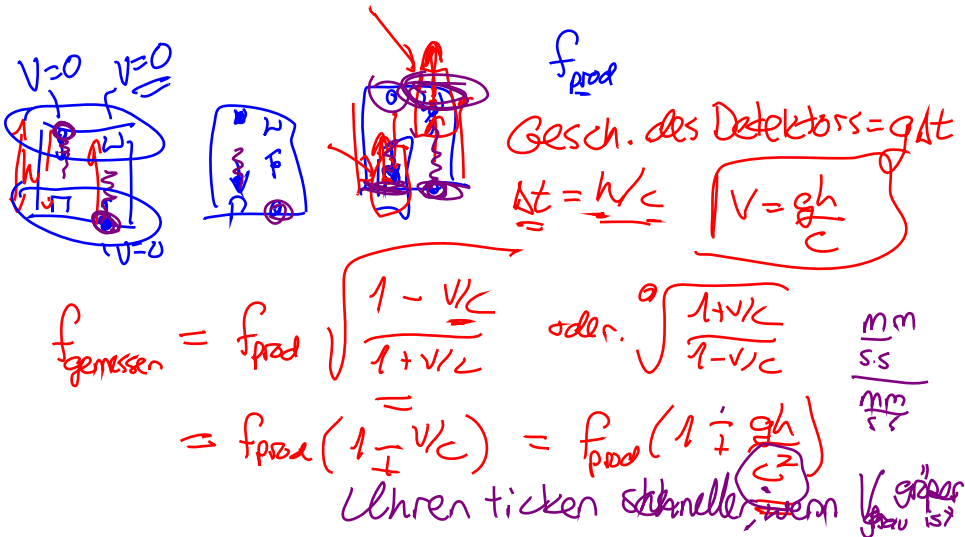 V=0 V=0
V=0
h
f_prod
Gesch. des Detektors = gΔt
Δt = h/c
V = gh/c
f_gemessen = f_prod √((1 - v/c)/(1 + v/c)) oder √((1+v/c)/(1-v/c))
= f_prod (1 ∓ v/c) = f_prod (1 ∓ gh/c²)
m m / s·s
m m / s s
Uhren ticken schneller, wenn V_grav größer ist